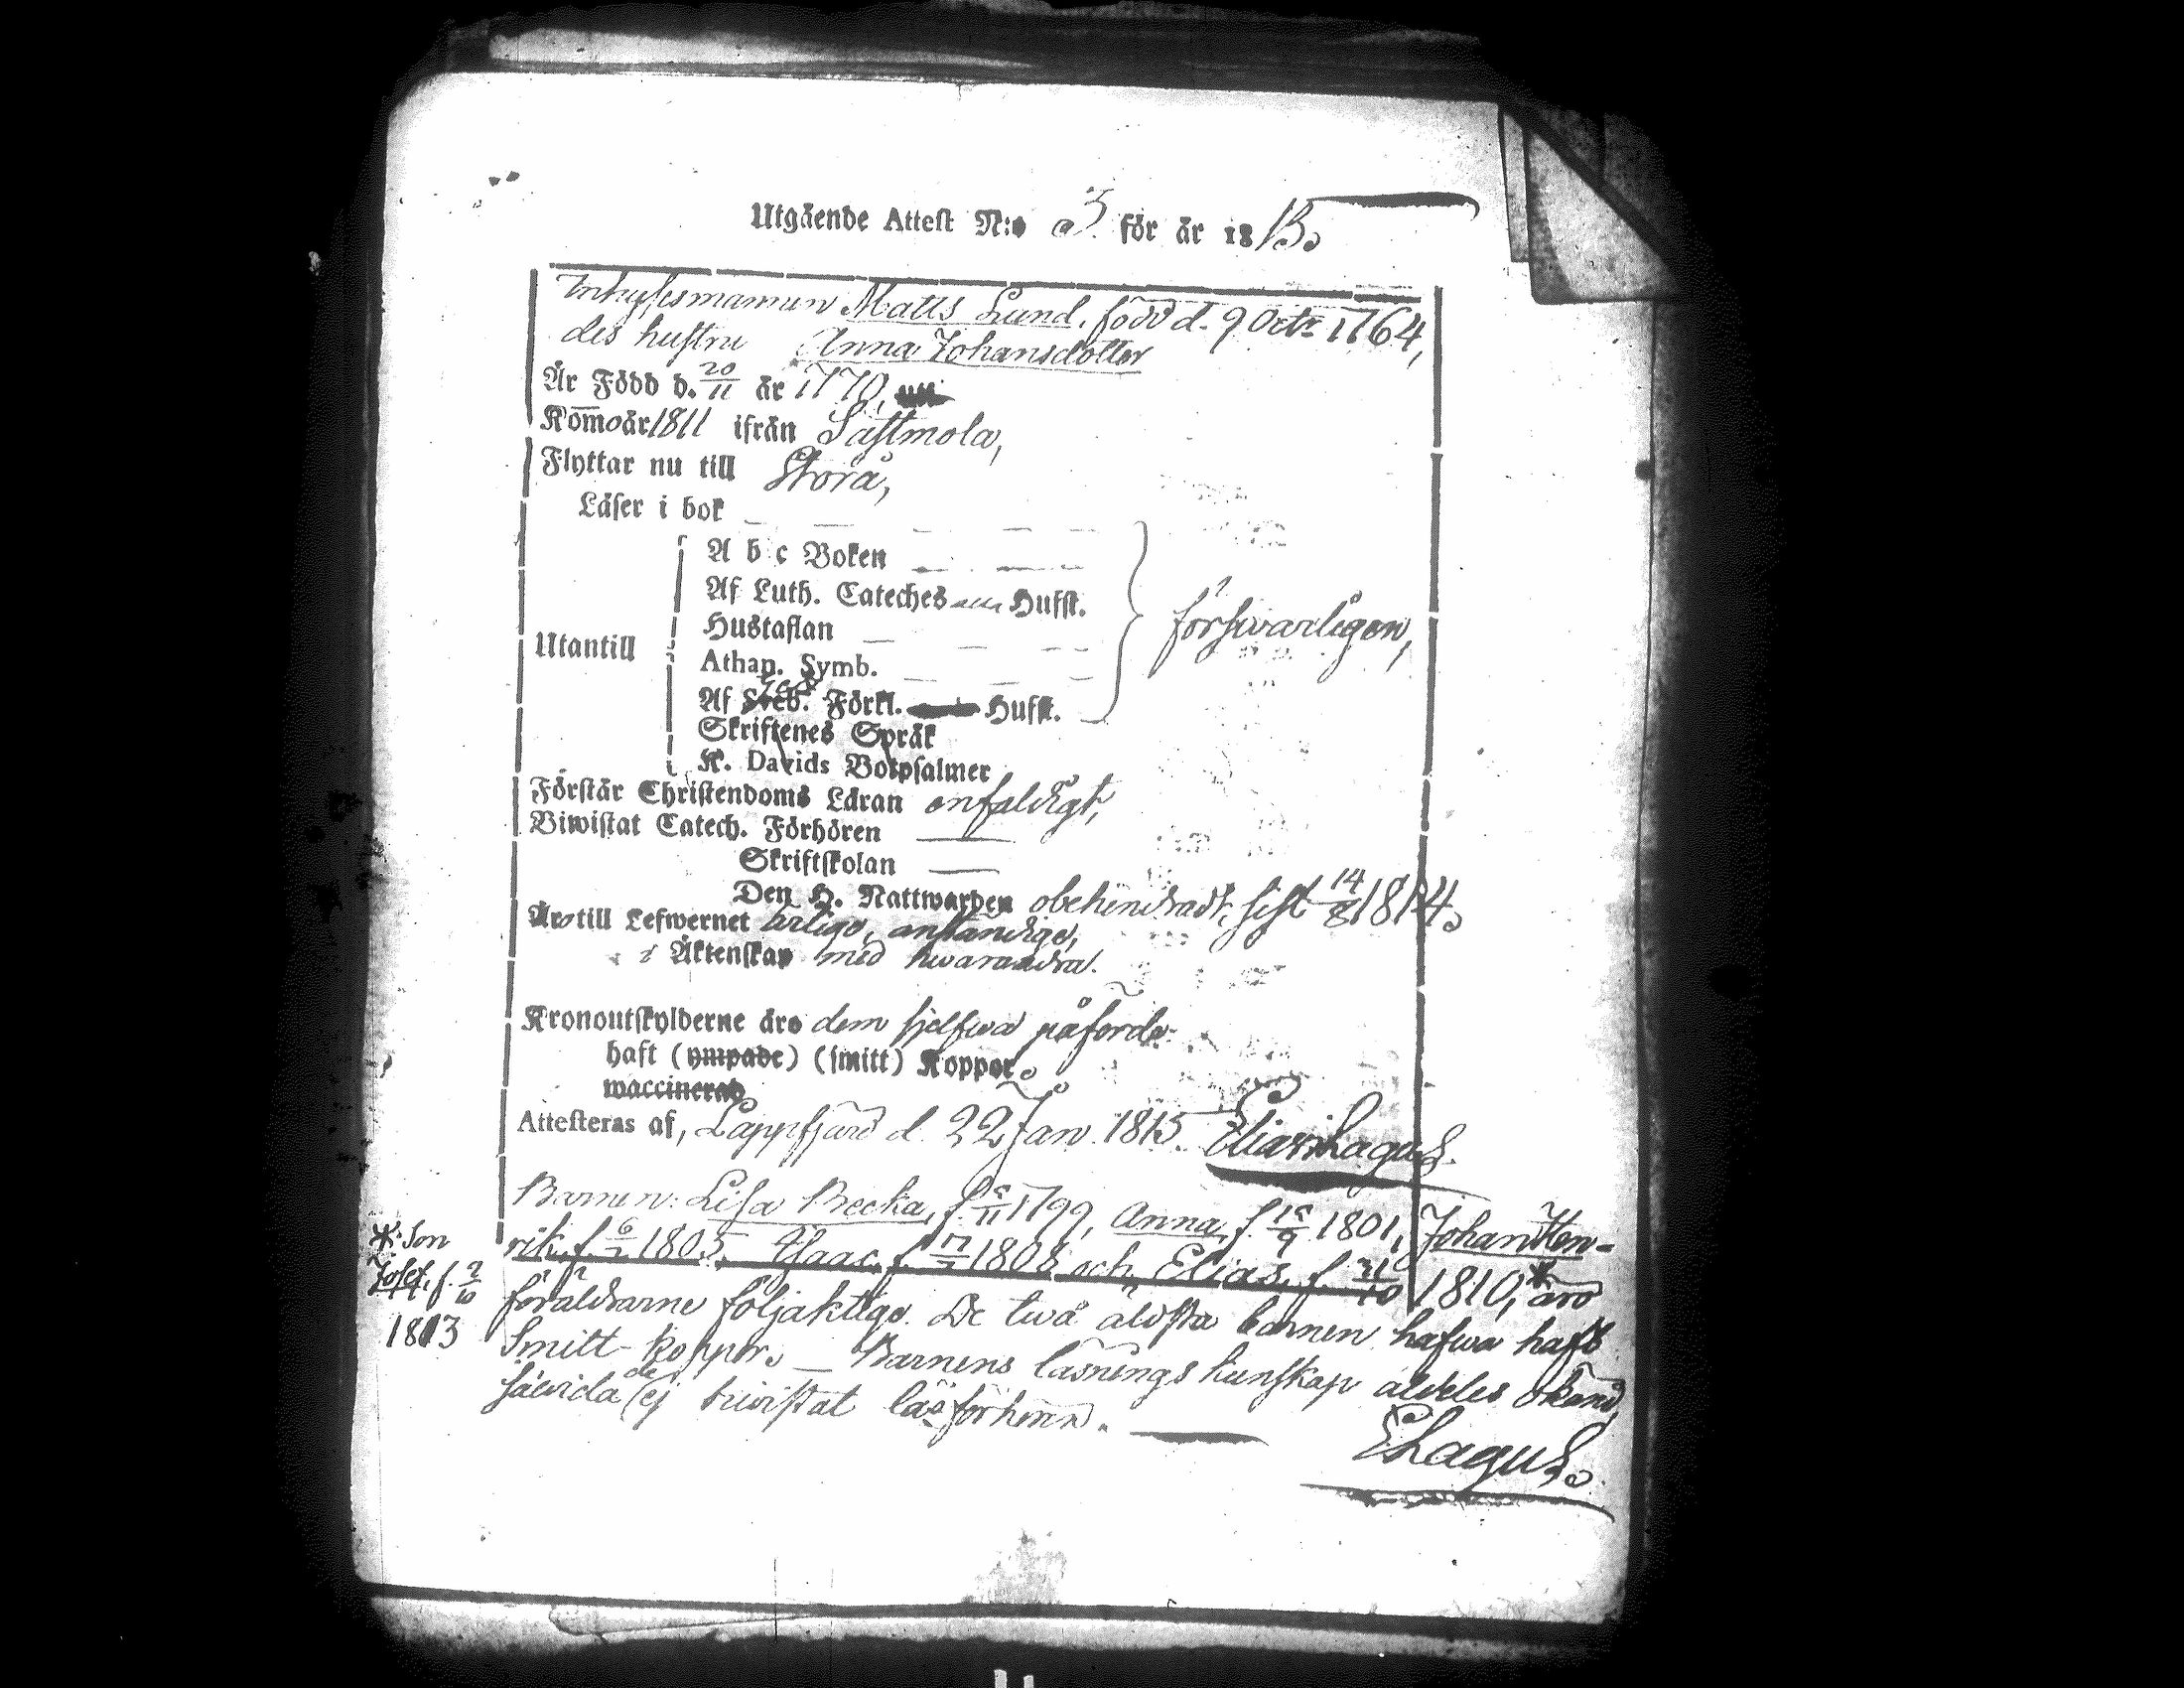 Utgående Attest N:o 3 för år 1815.
Inhysesmannen Matts Lund, född d. 9 Octr 1764,
des hustru Anna Johansdotter
Är Född d. 20/11 år 1770,
Kommo år 1811 ifrån Sastmola,
Flyttar nu till Storå,
Läser i bok
A b c Boken
Af Luth. Cateches Hufst.
Hustaflan
Utantill
Athan. Symb.
Af Förkl. Hufst.
försvarligen,
Skriftenes Språk
K. Davids Botpsalmer
Förstår Christendoms Läran enfaldigt,
Biwistat Catech. Förhören
Skriftskolan
Den H. Nattwarden obehindradt, sist 14/8 1814.
Äro till Lefwernet ärlige, anständige,
i Äktenskap med hwarandra.
Kronoutskylderne äro dem sjelfwa påförde.
haft (ympade) (smitt) Koppor.
waccinerad
Attesteras af, Lappfjärd d. 22 Jan. 1815. Elias Lagus.
Barnen: Lisa Becka, f. /11 1799, Anna, f. /9 1801, Johan Hen-
rik, f. 6/ 1805, Isaac, f. 1808 och Elias, f. 31/10 1810,* äro
föräldrarne följaktige. De twå äldsta barnen hafwa haft
* Son
Josef, f. 2/10
1813
Smitt-koppor. — Barnens läsnings kunskap aldeles okänd,
såvida de ej biwistat läsförhören.
E Lagus.